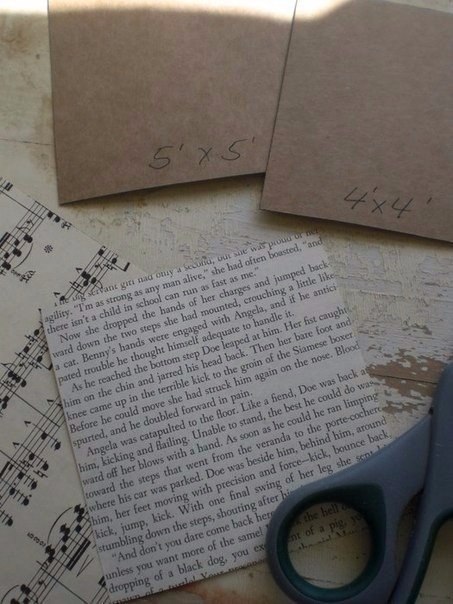 5' x 5'
4' x 4'
girl had only a second, but she was proud of her
agility. "I'm as strong as any man alive," she had often boasted, "and
there isn't a child in school can run as fast as me."
Now she dropped the hands of her charges and jumped back
ward down the two steps she had mounted, crouching a little like
a cat. Benny's hands were engaged with Angela, and if he antici
pated trouble he thought himself adequate to handle it.
As he reached the bottom step Doe leaped at him. Her fist caught
him on the chin and jarred his head back. Then her bare foot and
knee came up in the terrible kick to the groin of the Siamese boxer
Before he could move she had struck him again on the nose. Blood
spurted, and he doubled forward in pain.
Angela was catapulted to the floor. Like a fiend, Doe was back at
him, kicking and flailing. Unable to stand, the best he could do was
ward off her blows with a hand. As soon as he could he ran limping
toward the steps that went from the veranda to the porte-cochere
where his car was parked. Doe was beside him, behind him, around
him, her feet moving with precision and force—kick, bounce back
kick, jump, kick. With one final swing of her leg she sent
stumbling down the steps, shouting after his
"And don't you dare come back here the hell
unless you want more of the same of a pig, you
dropping of a black dog, you